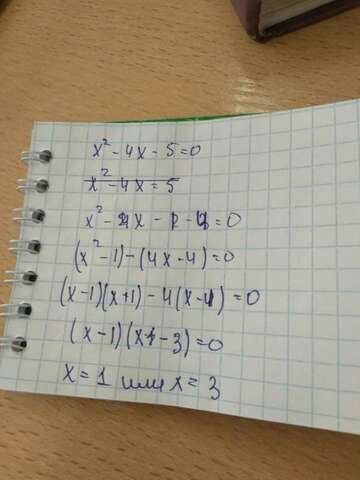 x² - 4x - 5 = 0
x² - 4x = 5
x² - 4x - 1 - 4 = 0
(x² - 1) - (4x - 4) = 0
(x - 1)(x + 1) - 4(x - 1) = 0
(x - 1)(x - 3) = 0
x = 1 или x = 3